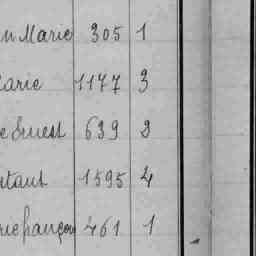 n Marie 305 1
Marie 1177 3
e Ernest 639 2
utant 1595 4
rie françois 461 1